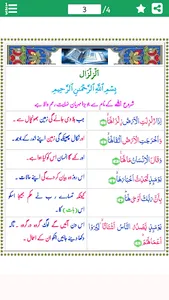 3 /4
الزلزال
بِسْمِ اللّٰهِ الرَّحْمٰنِ الرَّحِيْمِ
شروع اللہ کے نام سے جو بڑا مہربان نہایت رحم والا ہے
اِذَا زُلْزِلَتِ الْاَرْضُ زِلْزَالَهَا جب ہلا دی جائے گی زمین بھونچال سے۔
وَاَخْرَجَتِ الْاَرْضُ اَثْقَالَهَا اور نکال پھینکے گی زمین اپنے اندر کے بوجھ
وَقَالَ الْاِنْسَانُ مَا لَهَا اور کہے گا انسان اسے کیا ہوا ہے۔
يَوْمَئِذٍ تُحَدِّثُ اَخْبَارَهَا اس روز بیان کر دے گی اپنے حالات۔
بِاَنَّ رَبَّكَ اَوْحٰى لَهَا کیونکہ تمہارے رب نے حکم بھیجا اس کو
يَوْمَئِذٍ يَّصْدُرُ النَّاسُ اَشْتَاتًا لِّيُرَوْا اس دن آئیں گے لوگ گروہ گروہ۔ تاکہ
اَعْمَالَهُمْ دکھا دیے جائیں انکو ان کے اعمال۔